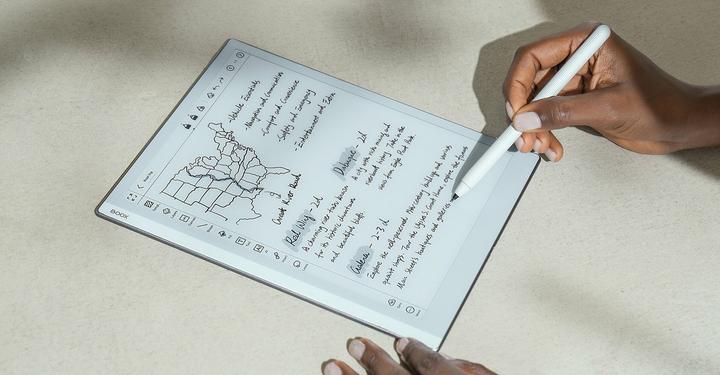 - Vehicle Essentials
- Navigation and Communication
- Comfort and Convenience
- Safety and Emergency
- Entertainment and Extra
Great River Road
Red Wing - 2d
A charming river town known
for its historic downtown
and beautiful bluffs
Dubuque - 2d
A city with rich mining and
riverboat history. Take in the
views from Eagle Point Park.
Galena - 2-3 d
Explore the well-preserved 19th-century buildings and various
quaint shops. Tour the Ulysses S. Grant Home, explore the
Main Street's boutiques and galleries
BOOX